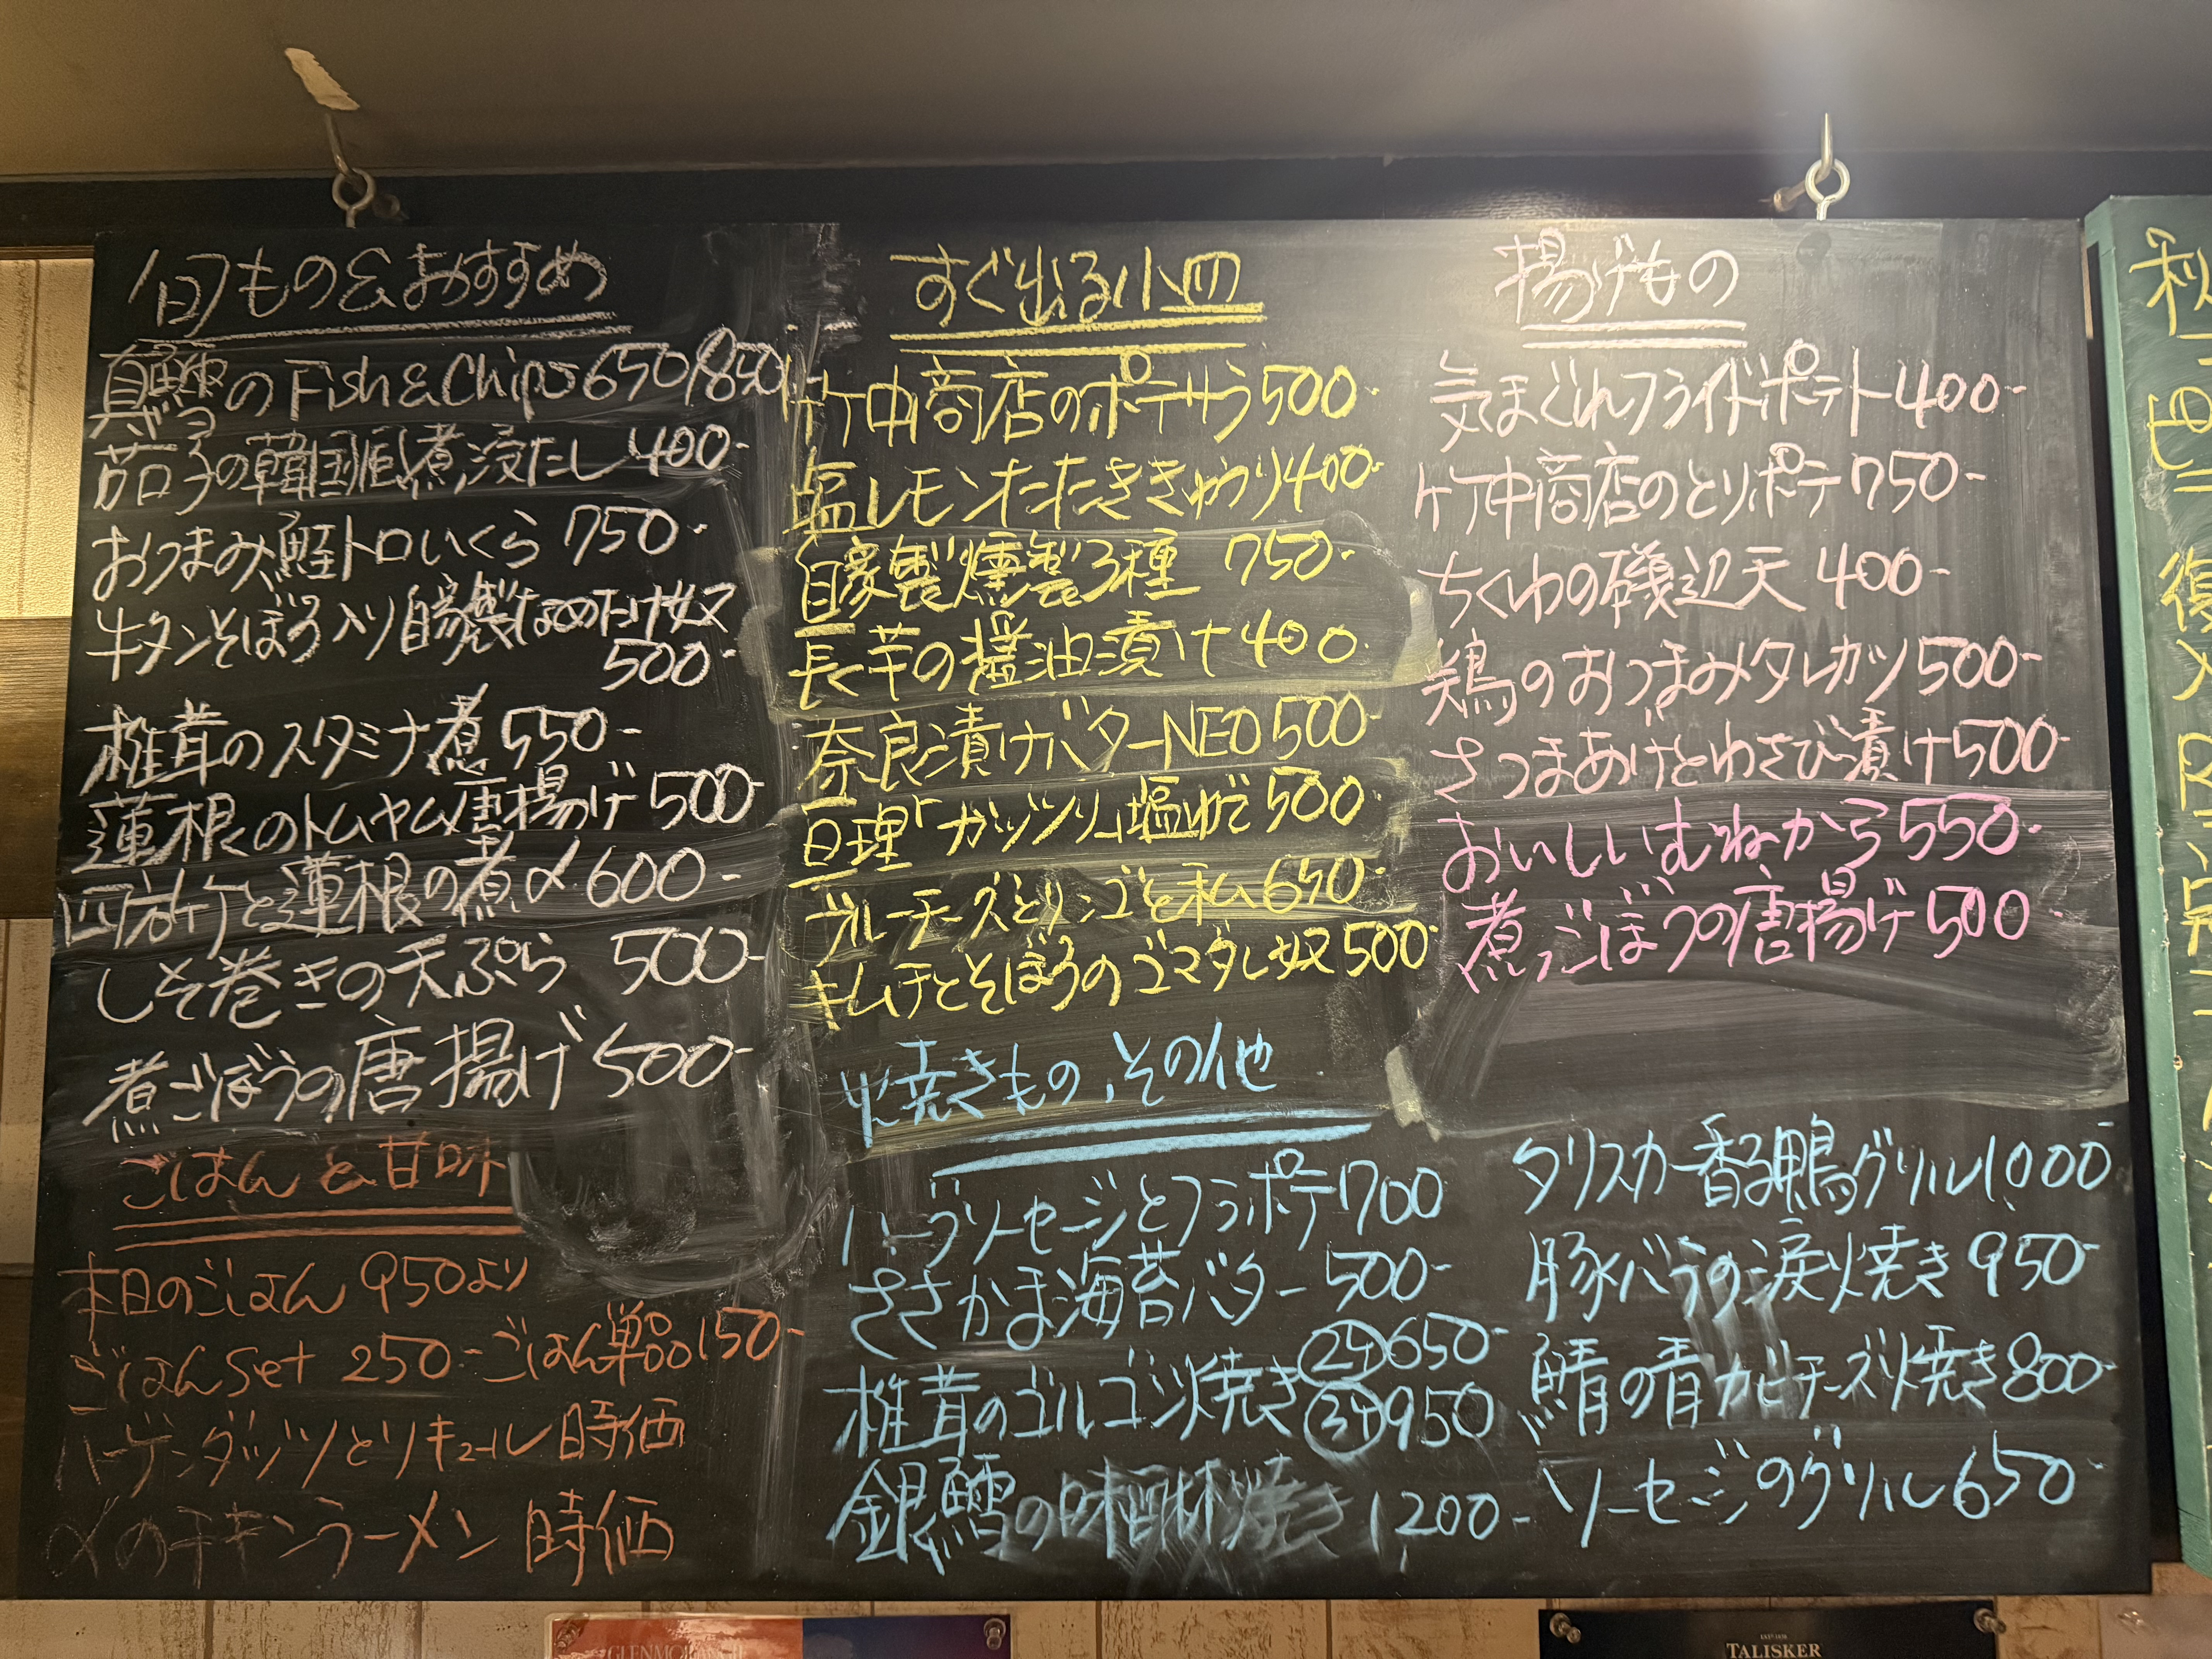 旬もの&おすすめ
真鰈のFish&Chips 650/850
茄子の韓国風煮浸だし 400-
おつまみ鮭トロいくら 750-
牛タンそぼろ入り自家製なめたけ奴
500-
椎茸のスタミナ煮 550-
蓮根のトムヤム唐揚げ 500-
と蓮根の煮〆 600-
しそ巻きの天ぷら 500-
煮ごぼうの唐揚げ 500-
ごはんと甘味
本日のごはん 950より
ごはんset 250- ごはん単品 150-
ハーゲンダッツとリキュール 時価
〆のチキンラーメン 時価
すぐ出る小皿
竹中商店のポテサラ 500-
塩レモンたたききゅうり 400-
自家製燻製3種 750-
長芋の醤油漬け 400
奈良漬けバターNEO 500-
亘理「ガッツリ」塩ゆで 500-
ブルーチーズとリンゴと私 650-
キムチとそぼろのゴマダレ奴 500-
焼きもの、その他
ハーブソーセージとフラポテ 700
ささかま海苔バター 500-
椎茸のゴルゴン焼き 2ケ 650-
3ケ 950
銀鱈の味醂焼き 1200-
揚げもの
気まぐれフライドポテト 400-
竹中商店のとりポテ 750-
ちくわの磯辺天 400-
鶏のおつまみタレカツ 500-
さつまあげとわさび漬け 500-
おいしいむねから 550-
煮ごぼうの唐揚げ 500-
タリスカー香る鴨グリル 1000-
豚バラの涙焼き 950-
鯖の青カビチーズ焼き 800-
ソーセージのグリル 650-
秋
TALISKER